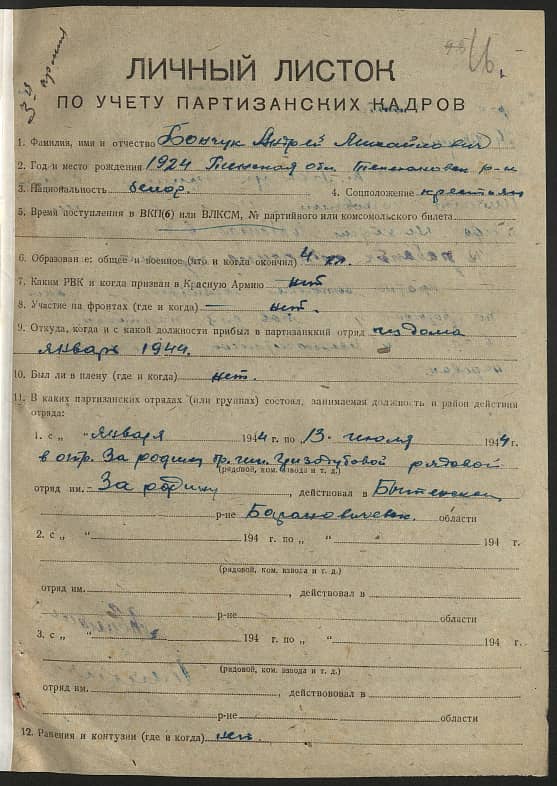 3-я
армия
46.
ЛИЧНЫЙ ЛИСТОК
ПО УЧЕТУ ПАРТИЗАНСКИХ КАДРОВ
1. Фамилия, имя и отчество Бончук Андрей Михайлович
2. Год и место рождения 1924 Пинская обл. Телехановск р-н
3. Национальность белор. 4. Соцположение крестьян
5. Время поступления в ВКП(б) или ВЛКСМ, № партийного или комсомольского билета
6. Образование: общее и военное (что и когда окончил) 4 кл.
7. Каким РВК и когда призван в Красную Армию нет
8. Участие на фронтах (где и когда) нет.
9. Откуда, когда и с какой должности прибыл в партизанский отряд из дома
январь 1944.
10. Был ли в плену (где и когда) нет.
11. В каких партизанских отрядах (или группах) состоял, занимаемая должность и район действия
отряда:
1. с „ “ января 1944 г. по 13 июля 1944 г.
в отр. За родину бр. им. рядовой
(рядовой, ком. взвода и т. д.)
отряд им. За родину, действовал в Бытенском
р-не Барановичск. области
2. с „ “ 194 г. по „ “ 194 г.
(рядовой, ком. взвода и т. д.)
отряд им. , действовал в
р-не области
3. с „ “ 194 г. по „ “ 194 г.
(рядовой, ком. взвода и т. д.)
отряд им. , действововал в
р-не области
12. Ранения и контузии (где и когда) нет.